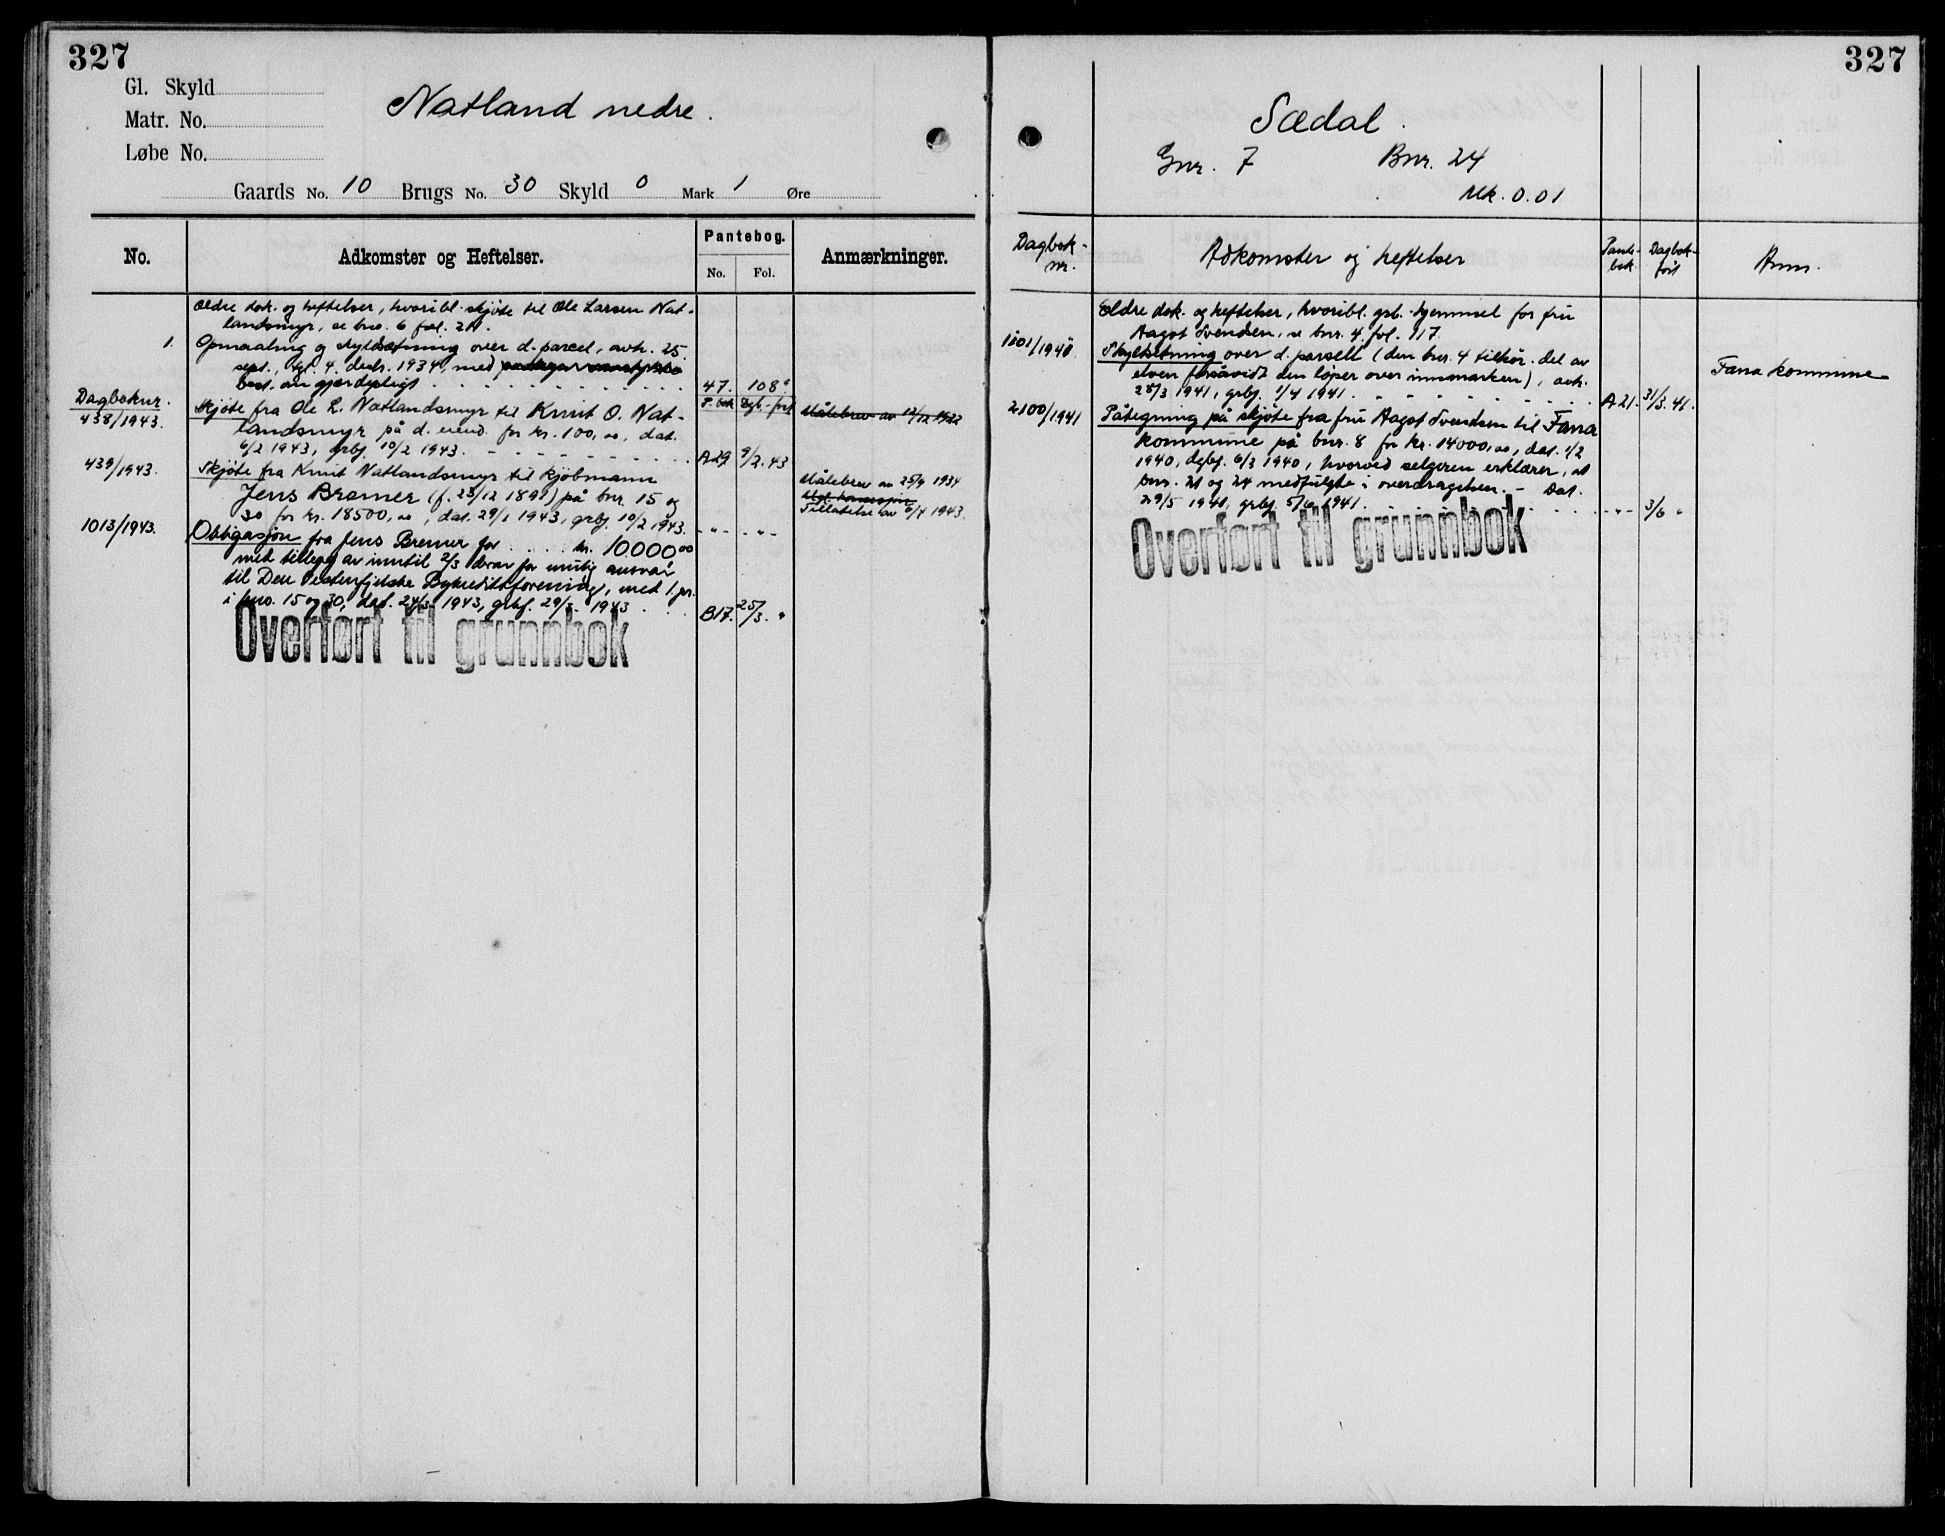 327
Gl. Skyld
Matr. No.
Løbe No.
Natland nedre.
Gaards No. 10 Brugs No. 30 Skyld 0 Mark 1 Øre
No.
Adkomster og Heftelser.
Pantebog.
No. Fol.
Anmærkninger.
Ældre dok. og heftelser, hvoribl. skjøte til Ole Larsen Nat-
landsmyr, se bno. 6 fol. 211.
1. Opmaaling og skyldsætning over d. parcel, avh. 25.
sept., tgl. 4. decbr. 1934, med
best. om gjærdepligt 47. 108
Dagboknr. P. bok Dgb.-ført
438/1943. Skjøte fra Ole L. Natlandsmyr til Knut O. Nat- Målebrev av 12/12 1922
landsmyr på d. eiend. for kr. 100,00, dat.
6/2 1943, grbf. 10/2 1943. A29 9/2.43
439/1943. Skjøte fra Knut Natlandsmyr til kjøbmann
Jens Bremer (f. 23/12 1891) på bnr. 15 og
30 for kr. 18500,00, dat. 29/1 1943, grbf. 10/2 1943. -"- -"-
Målebrev av 25/9 1934
Tillatelse av 6/4 1943.
1013/1943. Obligasjon fra Jens Bremer for kr. 10000.00
med tillegg av inntil 2/3 derav for innbyrdes ansvar
til Den Vestenfjelske Bykredittforening, med 1. pr.
i bno. 15 og 30, dat. 24/3 1943, grbf. 29/3 1943 B17. 25/3. "
Overført til grunnbok
327
Sædal.
Gnr. 7 Bnr. 24
Mk. 0.01
Dagbok-
nr.
Adkomster og heftelser
Pante-
bok
Dagbok-
ført
Anm.
Eldre dok. og heftelser, hvoribl. grb. hjemmel for fru
Aagot Svendsen, se bnr. 4 fol. 117
1101/1941. Skyldsetning over d. parsell (den bnr. 4 tilhør. del av
elven forsåvidt den løper over innmarken), avh.
28/3 1941, grbf. 1/4 1941. A21. 31/3.41.
Fana kommune
2100/1941 Påtegning på skjøte fra fru Aagot Svendsen til Fana
kommune på bnr. 8 for kr. 14000,00, dat. 1/2
1940, dgbf. 6/3 1940, hvorved selgeren erklærer, at
bnr. 21 og 24 medfulgte i overdragelsen. - Dat.
29/5 1941, grbf. 5/6 1941. -"- 3/6 "
Overført til grunnbok